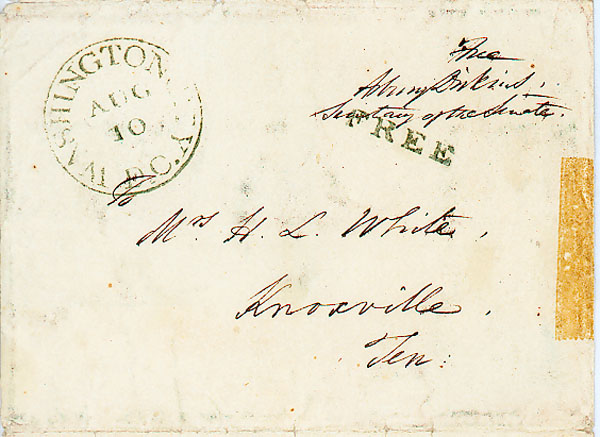 WASHINGTON CITY D.C.
AUG
10
Free
Asbury Dickins,
Secretary of the Senate.
FREE
To
Mrs H. L. White,
Knoxville.
Ten: